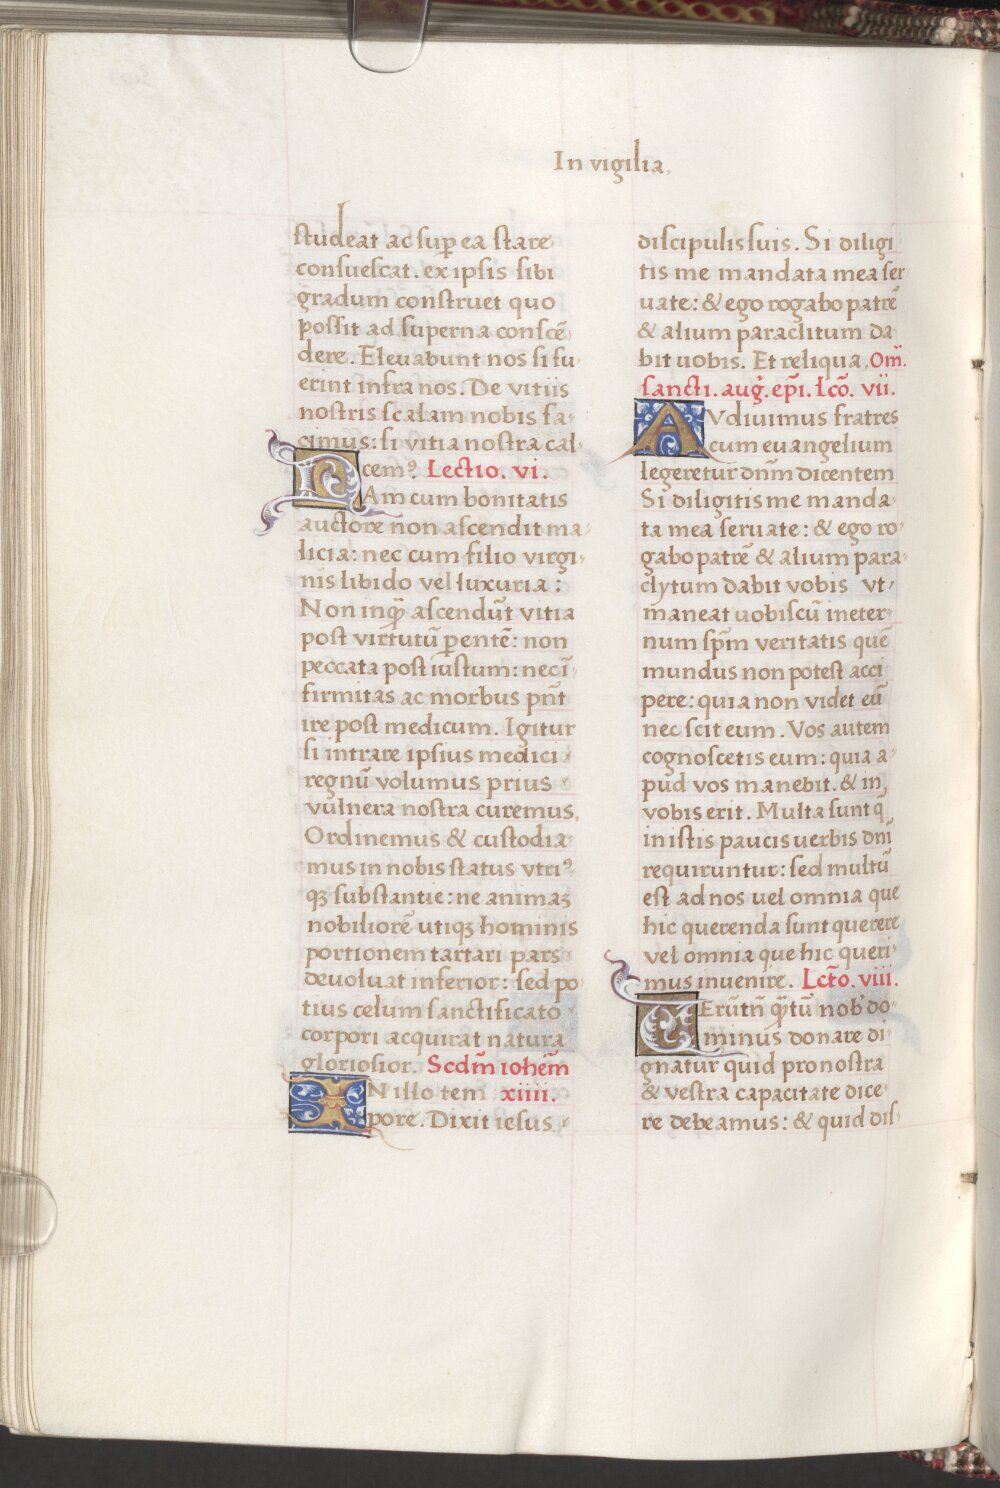 In vigilia.
studeat ac sup ea stare
consuescat. ex ipsis sibi
gradum construet quo
possit ad superna conscē
dere. Eleuabunt nos si fu
erint infra nos. De vitiis
nostris scalam nobis fa
cimus: si vitia nostra cal
cemꝰ. Lectio. vi.
NAm cum bonitatis
auctore non ascendit ma
licia: nec cum filio virgi
nis libido vel luxuria:
Non inq̄ ascendūt vitia
post virtutū ꝑentē: non
peccata post iustum: nec ī
firmitas ac morbus pn̄t
ire post medicum. Igitur
si intrare ipsius medici
regnū volumus prius
vulnera nostra curemus.
Ordinemus & custodia
mus in nobis status vtriꝰ
qꝫ substantie: ne animaꝫ
nobiliorē utiqꝫ hominis
portionem tartari pars
deuoluat inferior: sed po
tius celum sanctificato
corpori acquirat natura
gloriosior. Scdm̄ iohēm
IN illo tem xiiii.
pore. Dixit iesus
discipulis suis. Si diligi
tis me mandata mea ser
uate: & ego rogabo patrē
& alium paraclitum da
bit uobis. Et reliqua. Om̄.
sancti. aug̃. ep̄i. lc̄o. vii.
AVdiuimus fratres
cum euangelium
legeretur dn̄m dicentem
Si diligitis me manda
ta mea seruate: & ego ro
gabo patrē & alium para
clytum dabit vobis vt
maneat uobiscū in eter
num sp̄m veritatis quē
mundus non potest acci
pere: quia non videt eū
nec scit eum. Vos autem
cognoscetis eum: quia a
pud vos manebit. & in
vobis erit. Multa sunt q̄
in istis paucis uerbis dn̄i
requiruntur: sed multū
est ad nos uel omnia que
hic querenda sunt querere
vel omnia que hic queri
mus inuenire. Lct̄o. viii.
UErūtn̄ q̄tū nob̄ do
minus donare di
gnatur quid pro nostra
& vestra capacitate dice
re debeamus: & quid dis